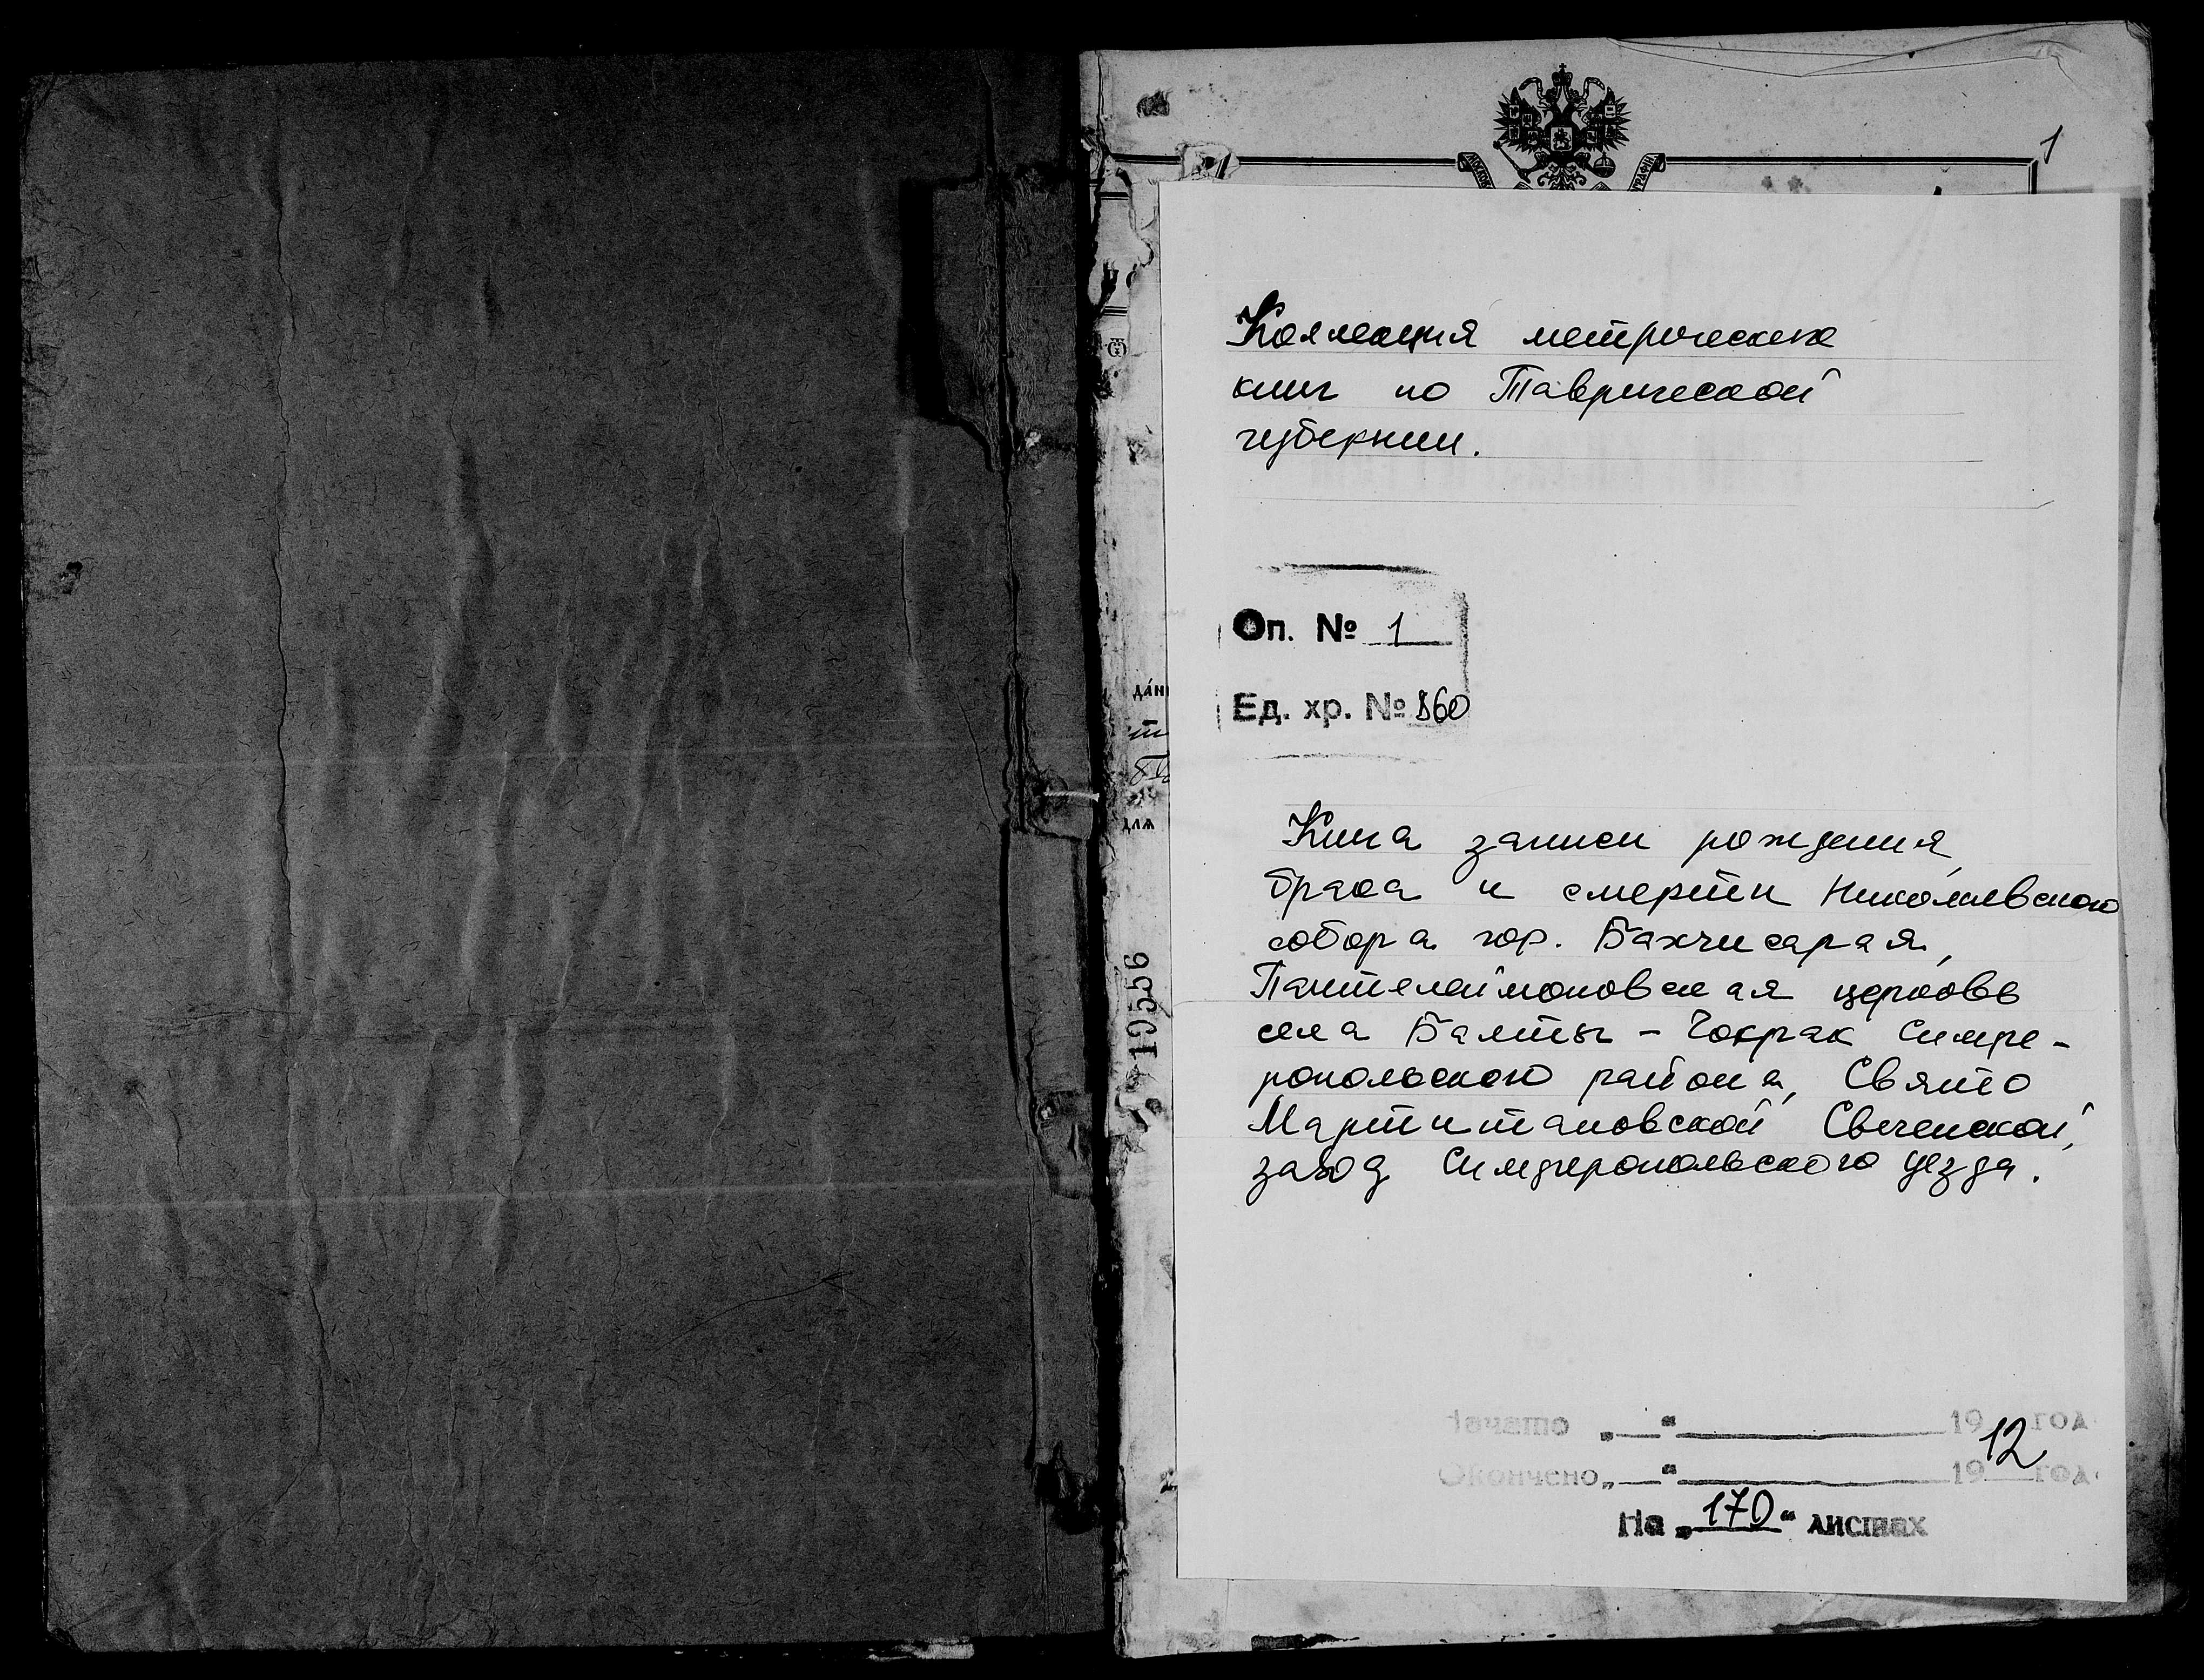 1
Коллекция метрических
книг по Таврической
губернии.
Оп. № 1
Ед. хр. № 860
дан
для
10556
Книга записи рождения,
брака и смерти Николаевского
собора гор. Бахчисарая,
Пантелеймоновская церковь
села Балты - Чокрак Симфе-
ропольского района, Свято
Мартитановской Свеченской,
завод Симферопольского уезда.
Начато „ “ 19 год
12
Окончено „ “ 19 год
На „170“ листах